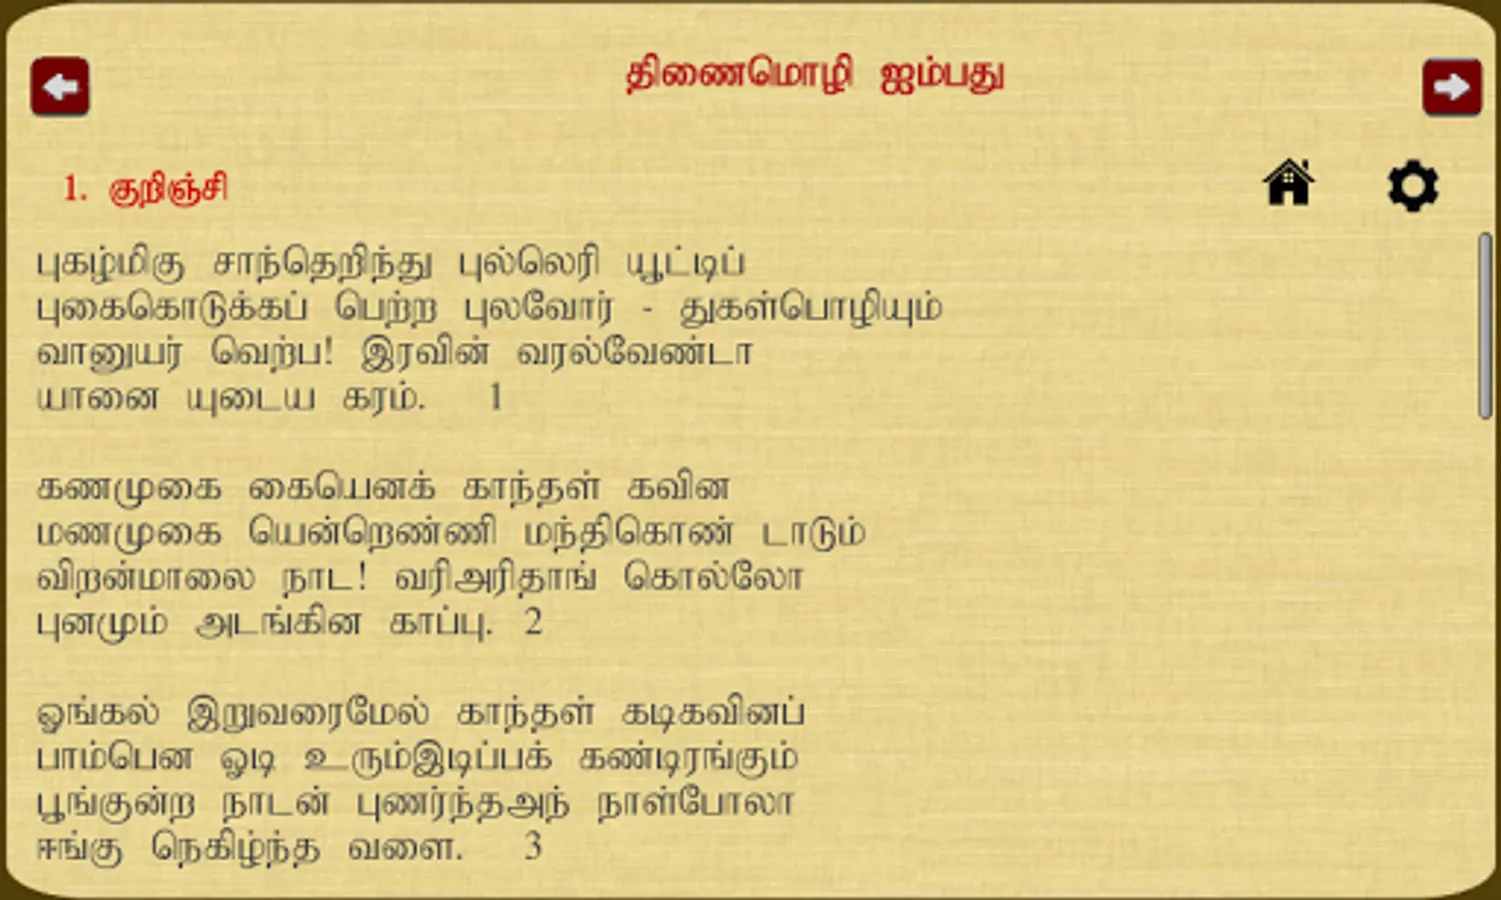 திணைமொழி ஐம்பது
1. குறிஞ்சி
புகழ்மிகு சாந்தெறிந்து புல்லெரி யூட்டிப்
புகைகொடுக்கப் பெற்ற புலவோர் - துகள்பொழியும்
வானுயர் வெற்ப! இரவின் வரல்வேண்டா
யானை யுடைய கரம். 1
கணமுகை கையெனக் காந்தள் கவின
மணமுகை யென்றெண்ணி மந்திகொண் டாடும்
விறன்மாலை நாட! வரிஅரிதாங் கொல்லோ
புனமும் அடங்கின காப்பு. 2
ஓங்கல் இறுவரைமேல் காந்தள் கடிகவினப்
பாம்பென ஓடி உரும்இடிப்பக் கண்டிரங்கும்
பூங்குன்ற நாடன் புணர்ந்தஅந் நாள்போலா
ஈங்கு நெகிழ்ந்த வளை. 3